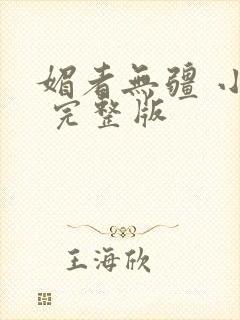 媚者無疆 小
完整版
王海欣